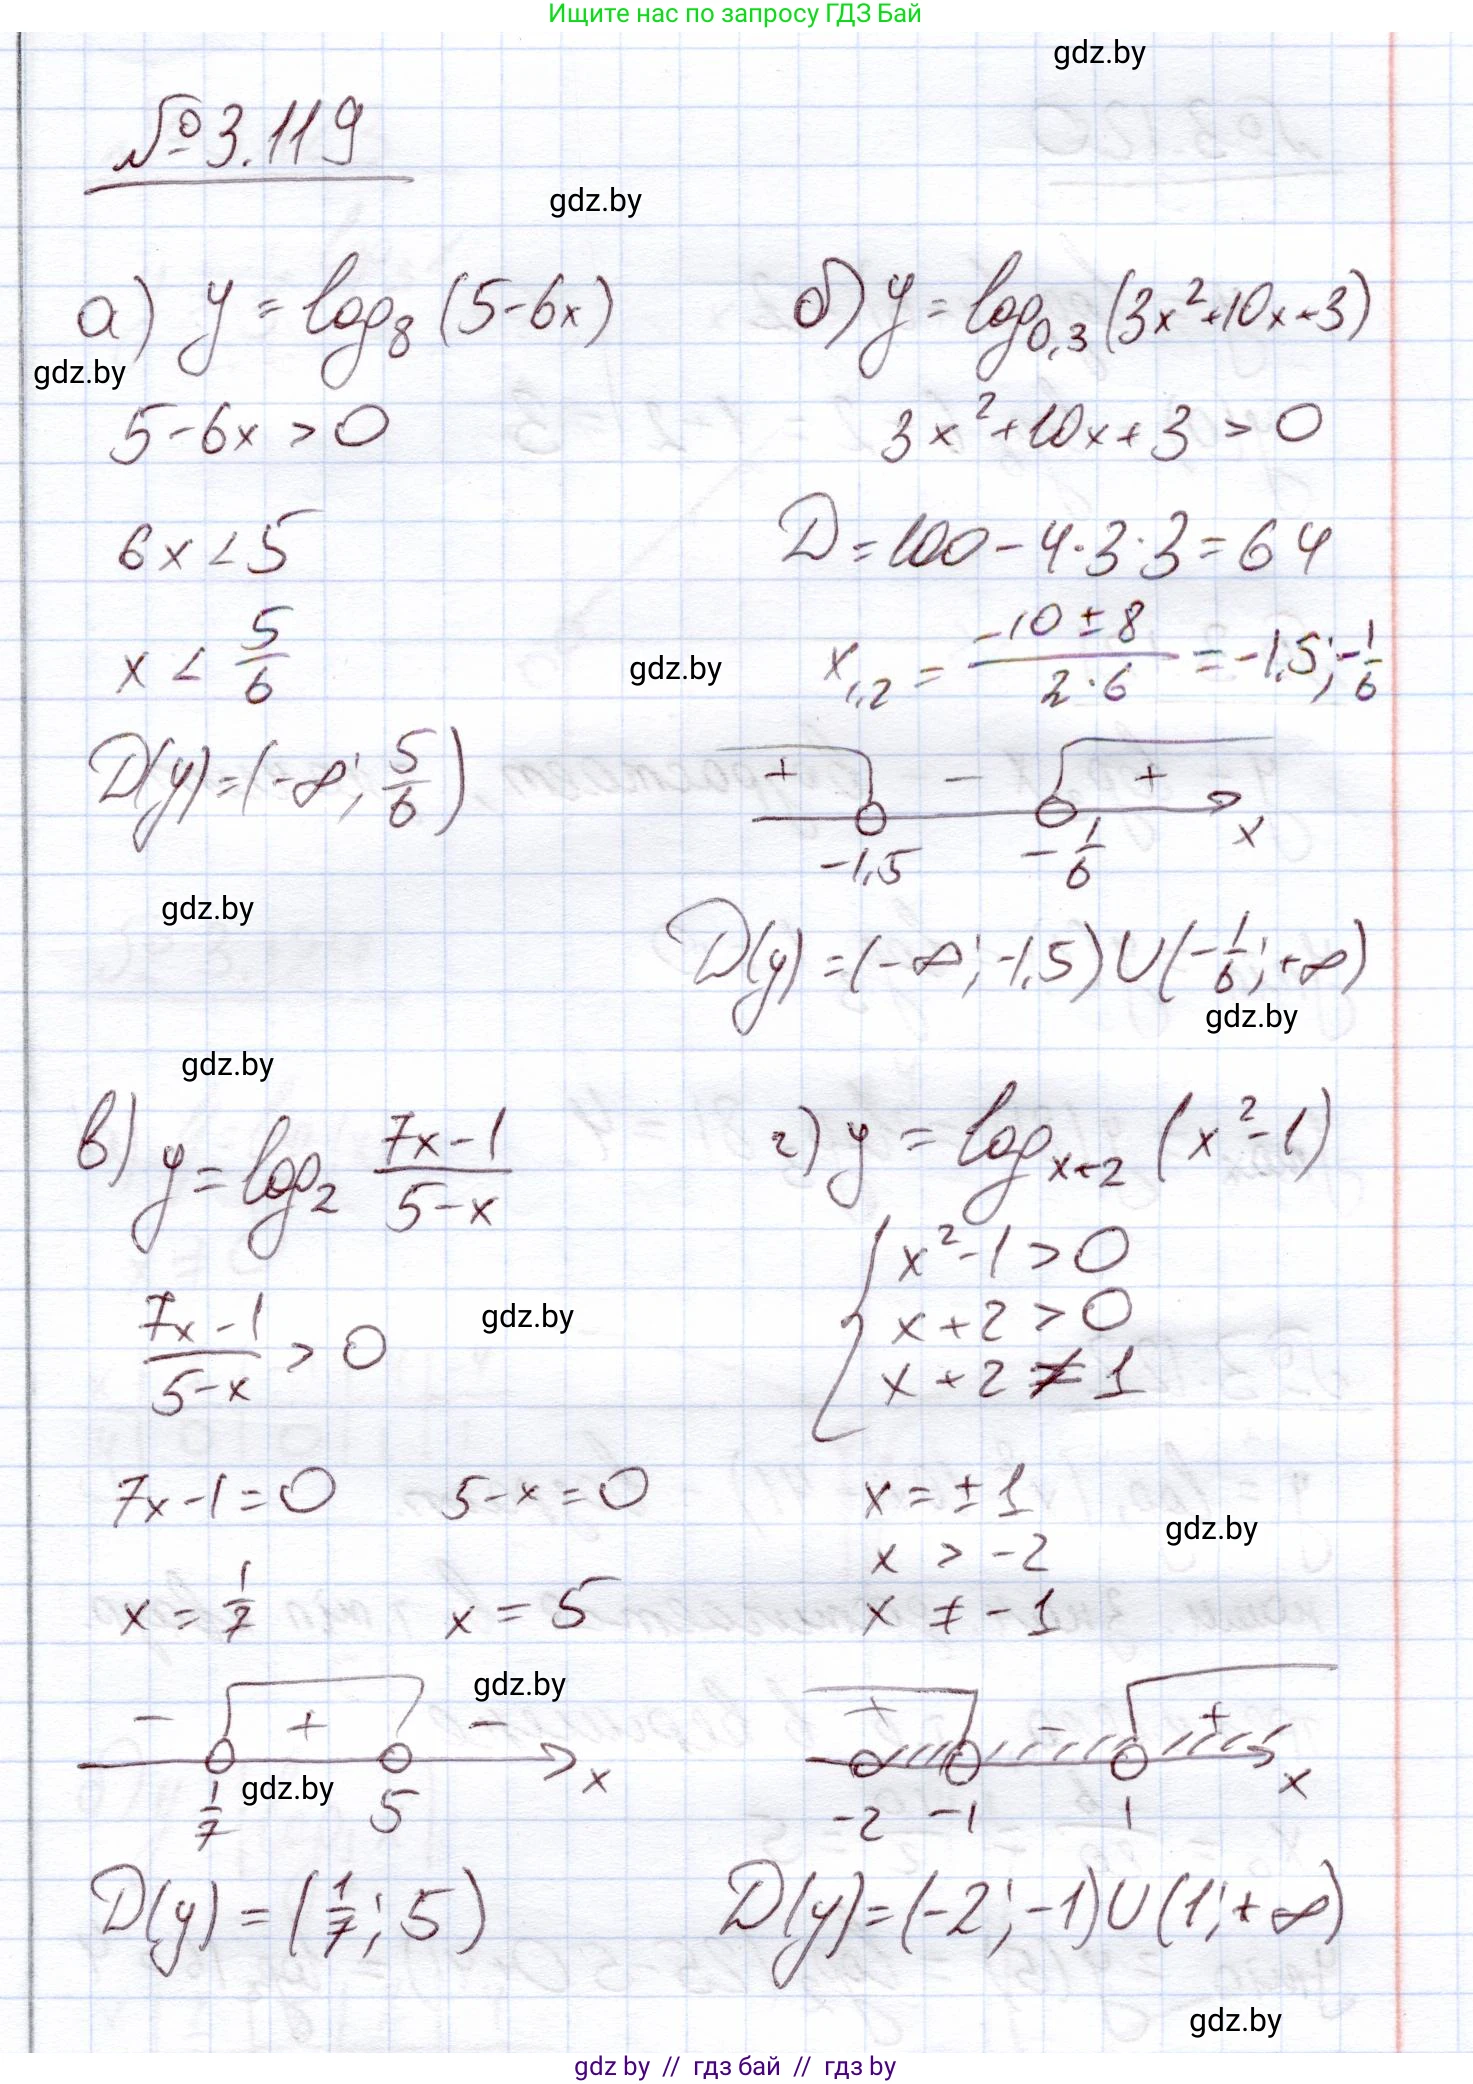 Ищите нас по запросу ГДЗ Бай
gdz.by
№ 3.119
gdz.by
а) y = log₈ (5-6x)
gdz.by
5-6x > 0
6x < 5
x < 5/6
D(y) = (-∞; 5/6)
gdz.by
б) y = log₀,₃ (3x²+10x+3)
3x²+10x+3 > 0
D = 100 - 4·3·3 = 64
gdz.by
x₁,₂ = (-10 ± 8)/(2·6) = -1,5; -1/6
+ - +
-1,5 -1/6 x
D(y) = (-∞; -1,5) ∪ (-1/6; +∞)
gdz.by
gdz.by
в) y = log₂ (7x-1)/(5-x)
(7x-1)/(5-x) > 0
gdz.by
7x-1 = 0 5-x = 0
x = 1/7 x = 5
gdz.by
- + -
1/7 5 x
gdz.by
D(y) = (1/7; 5)
г) y = logₓ₊₂ (x²-1)
x²-1 > 0
x+2 > 0
x+2 ≠ 1
x = ±1
gdz.by
x > -2
x ≠ -1
+ - +
-2 -1 1 x
D(y) = (-2; -1) ∪ (1; +∞)
gdz.by
gdz by // гдз бай // гдз by